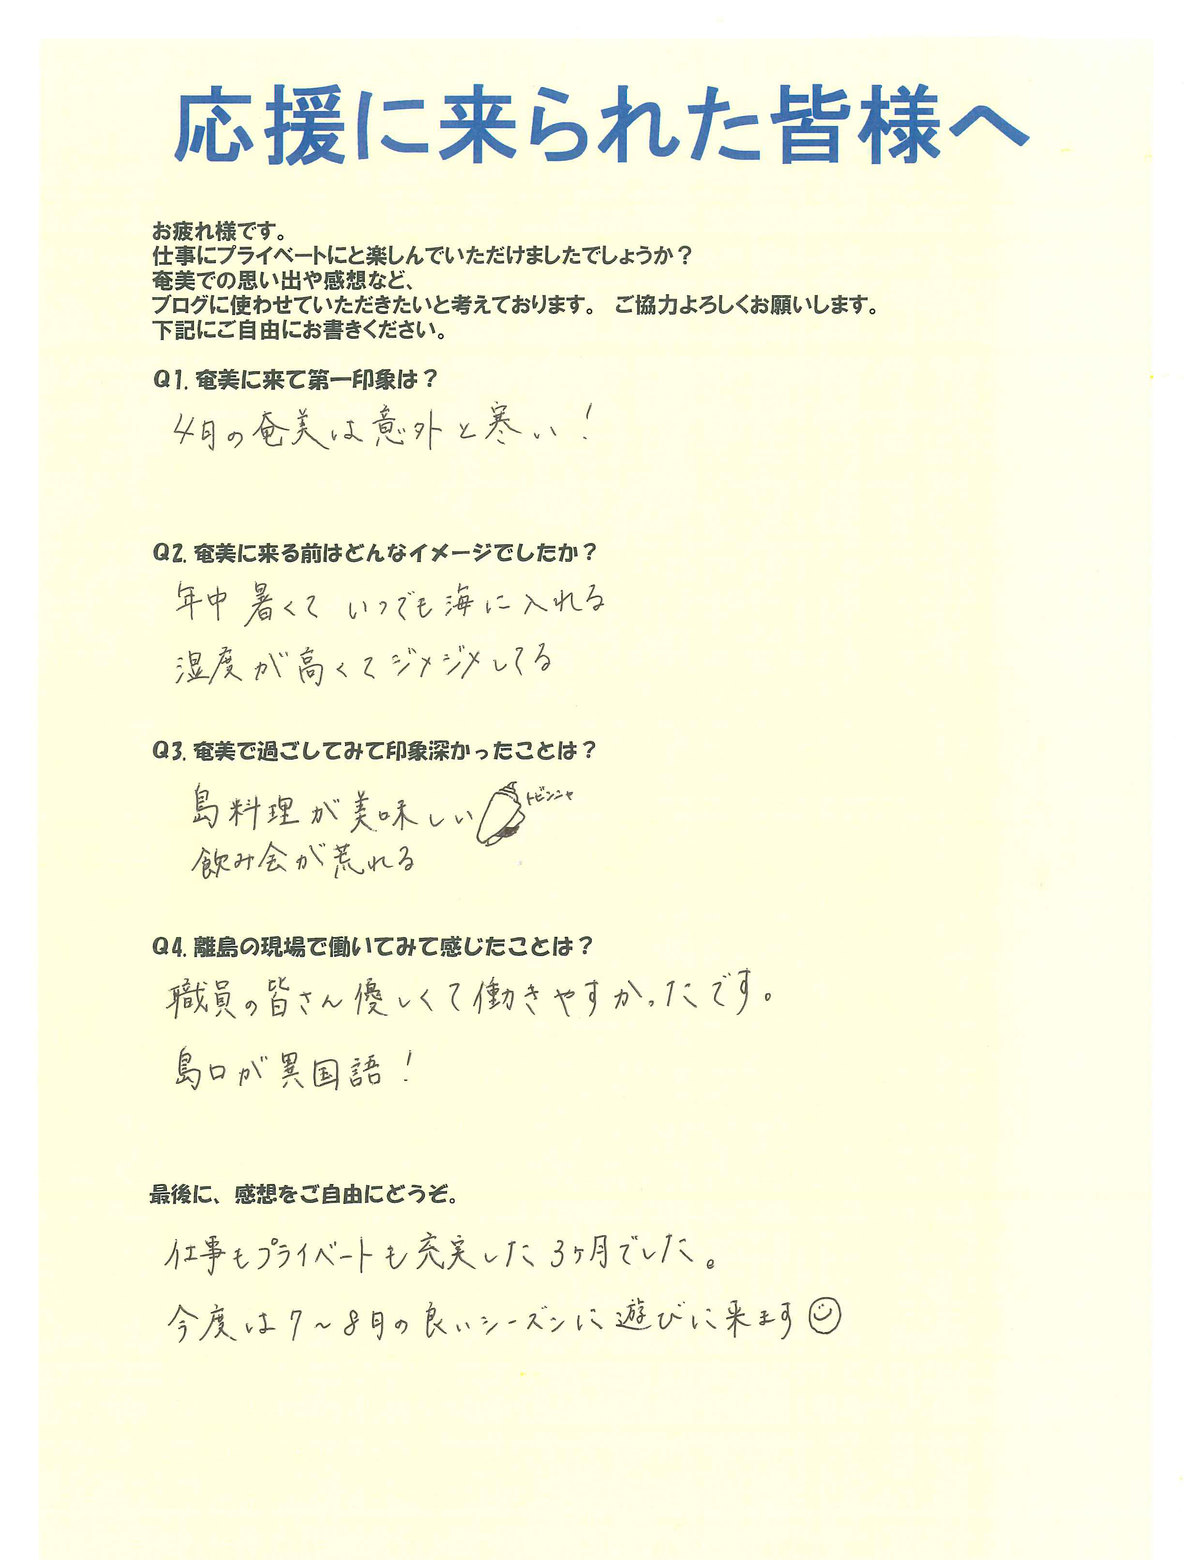 応援に来られた皆様へ
お疲れ様です。
仕事にプライベートにと楽しんでいただけましたでしょうか？
奄美での思い出や感想など、
ブログに使わせていただきたいと考えております。 ご協力よろしくお願いします。
下記にご自由にお書きください。
Q1. 奄美に来て第一印象は？
4月の奄美は意外と寒い！
Q2. 奄美に来る前はどんなイメージでしたか？
年中暑くて いつでも海に入れる
湿度が高くてジメジメしてる
Q3. 奄美で過ごしてみて印象深かったことは？
島料理が美味しい トビンニャ
飲み会が荒れる
Q4. 離島の現場で働いてみて感じたことは？
職員の皆さん優しくて働きやすかったです。
島口が異国語！
最後に、感想をご自由にどうぞ。
仕事もプライベートも充実した3ヶ月でした。
今度は7～8月の良いシーズンに遊びに来ます